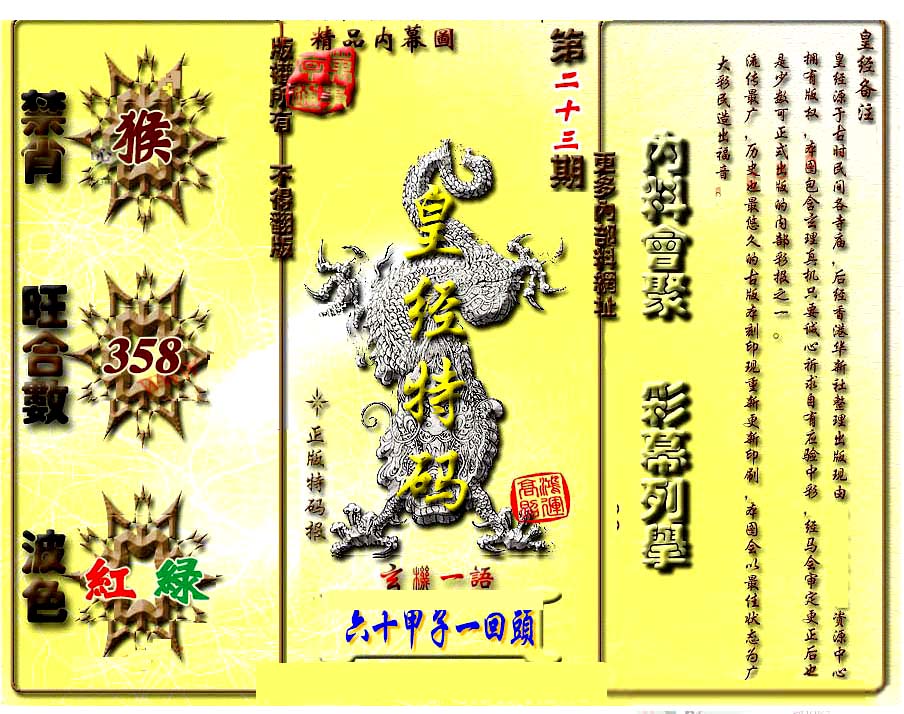 精品内幕圖
版權所有 不得翻版
第二十三期
更多內部料網址
禁肖
猴
旺合數
358
波色
紅 綠
皇经特码
正版特码报
鴻運高照
玄機一語
六十甲子一回頭
内料會聚 彩幕列舉
皇经备注
皇经源于古时民间各寺庙，后经香港华新社整理出版现由 资源中心
拥有版权，本图包含玄理真机只要诚心祈求自有应验中彩，经马会审定更正后也
是少数可正式出版的内部彩报之一。
流传最广，历史也最悠久的古版本刻印现重新更新印刷，本图会以最佳状态为广
大彩民造出福音